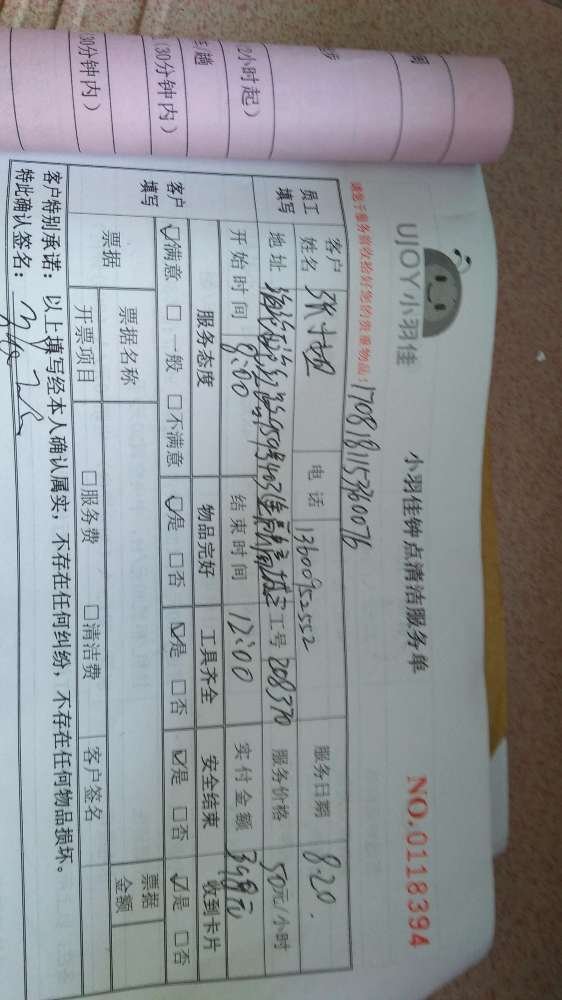 UJOY小羽佳
小羽佳钟点清洁服务单
NO.0118394
请您于服务前收拾好您的贵重物品!
170818115360076
员工填写
客户姓名
电话 13600952552
服务日期 8.20.
地址
工号 208370
服务价格 50元/小时
开始时间 8:00
结束时间 12:00
实付金额 398元
客户填写
服务态度 物品完好 工具齐全 安全结束 收到卡片
☑满意 □一般 □不满意 ☑是 □否 ☑是 □否 ☑是 □否 ☑是 □否
票据 票据名称
票据金额
开票项目 □服务费 □清洁费 客户签名
客户特别承诺： 以上填写经本人确认属实，不存在任何纠纷，不存在任何物品损坏。
特此确认签名：
2小时起）
（30分钟内）
30分钟内）